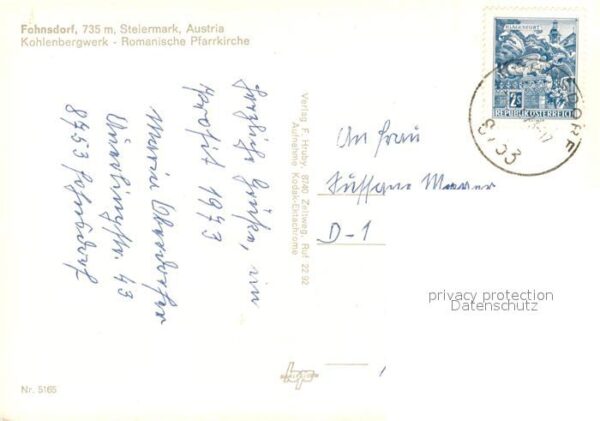 Fohnsdorf, 735 m, Steiermark, Austria
Kohlenbergwerk - Romanische Pfarrkirche
Herzliche Grüße, ein
Prosit 1973
Maria
43
8753 Fohnsdorf
Verlag F. Hruby, 8740 Zeltweg, Ruf 22 92
Aufnahme Kodak-Ektachrome
KLAGENFURT
2S
REPUBLIK ÖSTERREICH
SDORF
8753
An Frau
D-1
privacy protection
Datenschutz
Nr. 5165